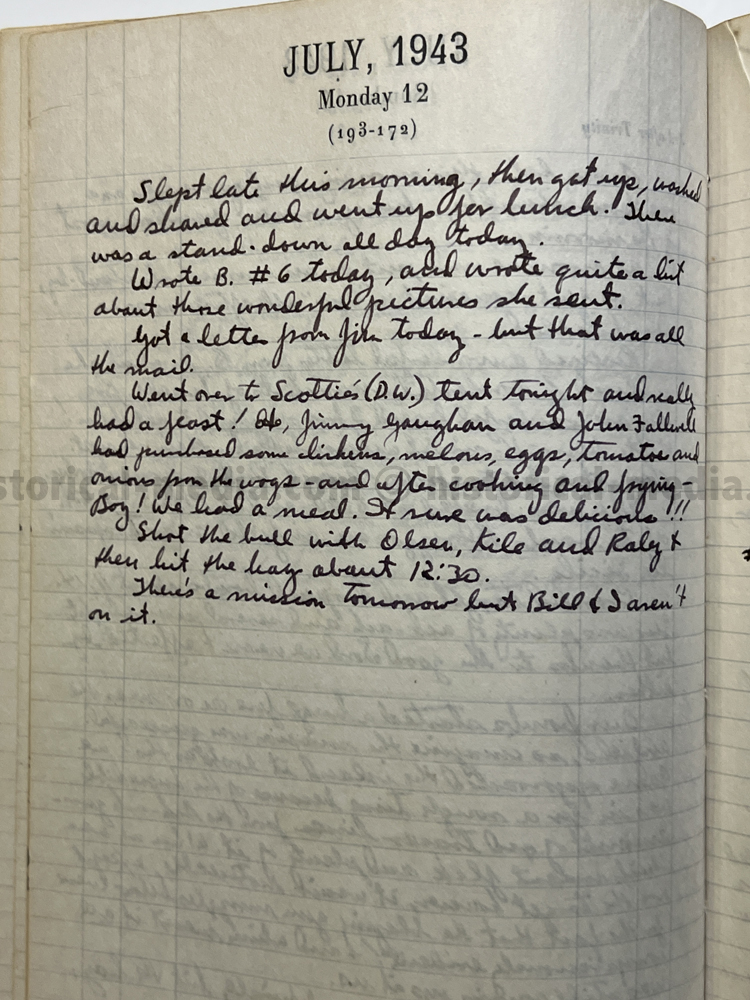 JULY, 1943
Monday 12
(193-172)
Slept late this morning, then got up, washed
and shaved and went up for lunch. There
was a stand-down all day today.
Wrote B. #6 today, and wrote quite a bit
about those wonderful pictures she sent.
Got a letter from Jim today - but that was all
the mail.
Went over to Scottie's (D.W.) tent tonight and really
had a feast! He, Jimmy Gaughan and John Fallwell
had purchased some chickens, melons, eggs, tomatoes and
onions from the wogs - and after cooking and frying -
Boy! We had a meal. It sure was delicious!!
Shot the bull with Olsen, Kile and Raly &
then hit the hay about 12:30.
There's a mission tomorrow but Bill & I aren't
on it.